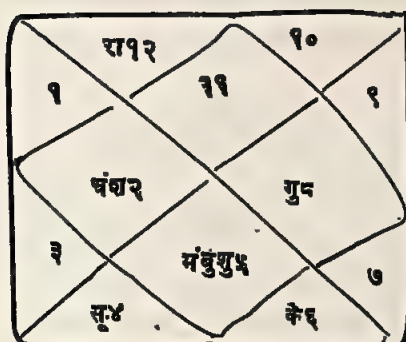 रा१२
१०
१
११
९
चंश२
गु८
३
मंबुशु५
७
सू४
के६